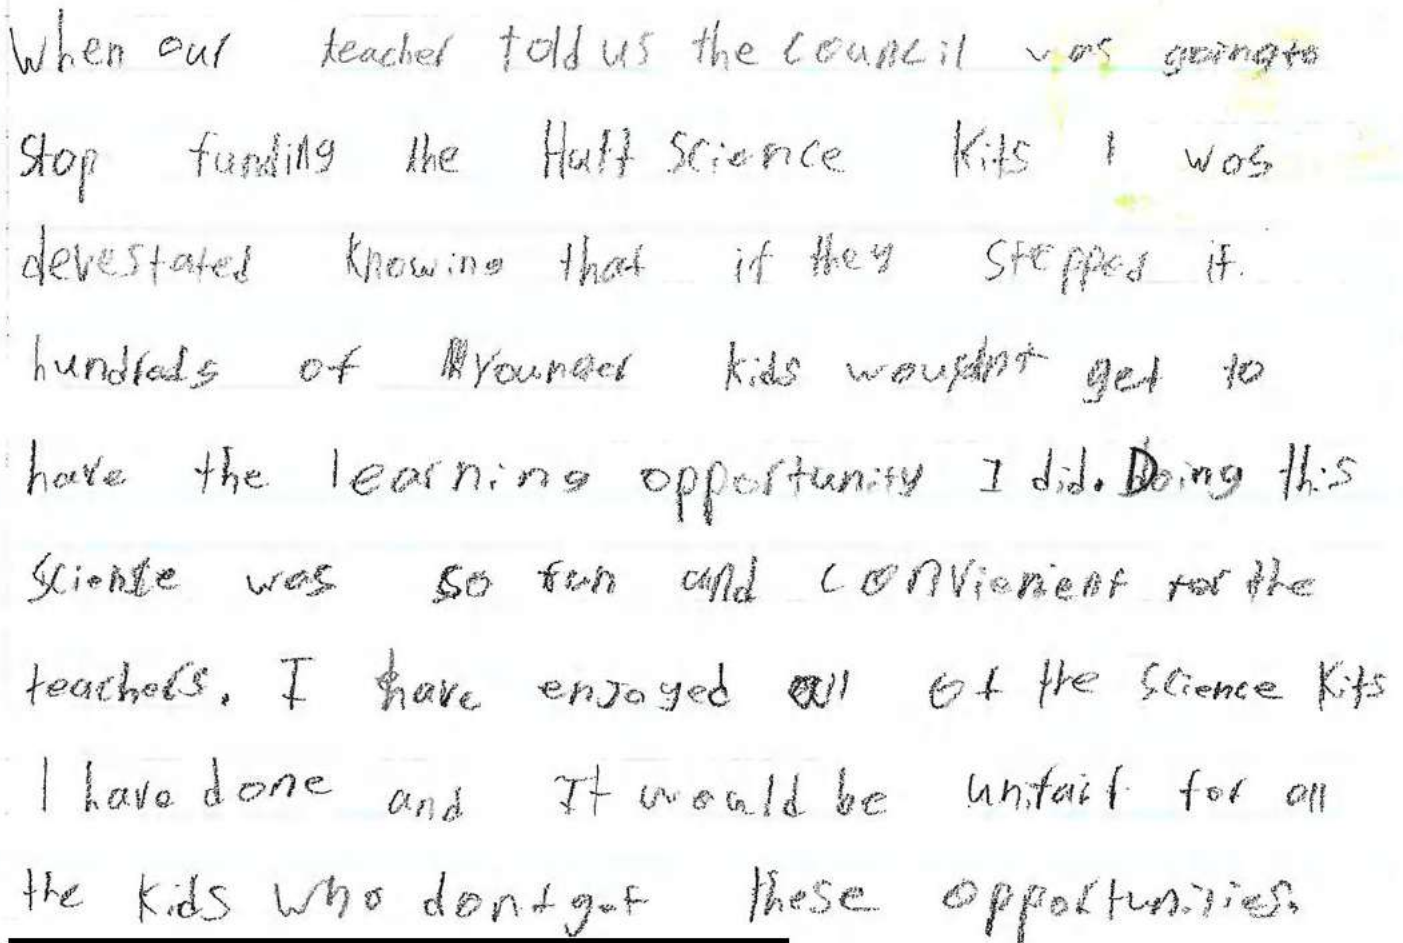 When our teacher told us the council was going to
stop funding the Hutt Science Kits I was
devestated knowing that if they stopped it.
hundrads of younger kids wouldnt get to
have the learning opportunity I did. Doing this
Science was so fun and convienient for the
teachers. I have enjoyed all of the Science Kits
I have done and It would be unfair for all
the kids who dont get these opportunities.